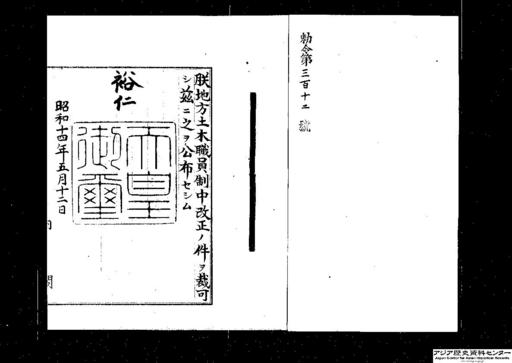 勅令第三百十二號
朕地方土木職員制中改正ノ件ヲ裁可
シ茲ニ之ヲ公布セシム
裕仁
天皇御璽
昭和十四年五月十二日
内閣
アジア歴史資料センター
Japan Center for Asian Historical Records